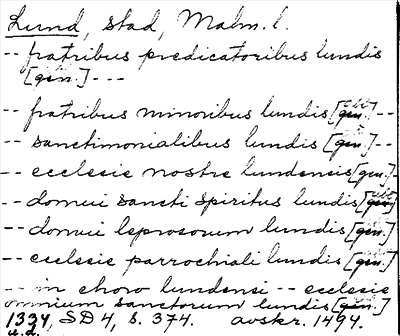 Lund, stad, Malm. l.
-- fratribus predicatoribus lundis
[gen.] ---
-- fratribus minoribus lundis [gen.] --
-- sanctimonialibus lundis [gen.] --
-- ecclesie nostre lundensis [gen.] -
-- domui sancti spiritus lundis [gen.]
-- domui leprosorum lundis [gen.]
-- ecclesie parrochiali lundis [gen.]
-- in choro lundensi -- ecclesie
omnium sanctorum lundis [gen.]
1334, SD 4, s. 374. avskr. 1494.
u.d.